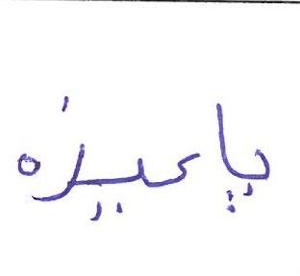 پاییزه